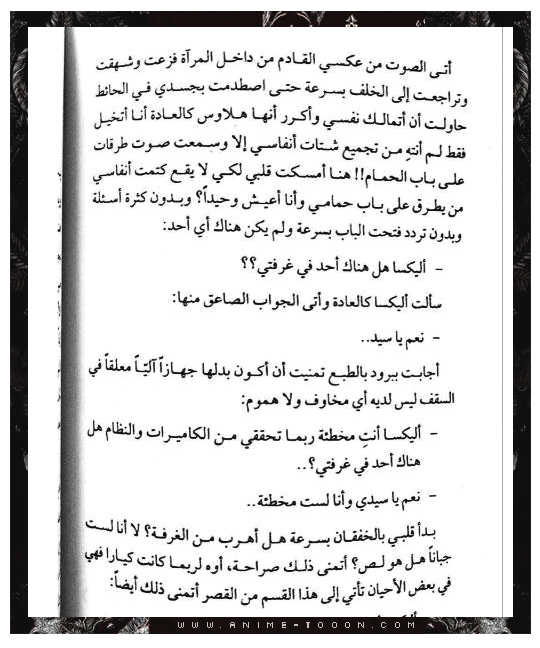 أتى الصوت من عكسي القادم من داخل المرآة فزعت وشهقت
وتراجعت إلى الخلف بسرعة حتى اصطدمت بجسدي في الحائط
حاولت أن أتمالك نفسي وأكرر أنها هلاوس كالعادة أنا أتخيل
فقط لم أنتهِ من تجميع شتات أنفاسي إلا وسمعت صوت طرقات
على باب الحمام!! هنا أمسكت قلبي لكي لا يقع كتمت أنفاسي
من يطرق على باب حمامي وأنا أعيش وحيداً؟ وبدون كثرة أسئلة
وبدون تردد فتحت الباب بسرعة ولم يكن هناك أي أحد:
- أليكسا هل هناك أحد في غرفتي؟؟
سألت أليكسا كالعادة وأتى الجواب الصاعق منها:
- نعم يا سيد..
أجابت ببرود بالطبع تمنيت أن أكون بدلها جهازاً آليّاً معلقاً في
السقف ليس لديه أي مخاوف ولا هموم:
- أليكسا أنتِ مخطئة ربما تحققي من الكاميرات والنظام هل
هناك أحد في غرفتي؟..
- نعم يا سيدي وأنا لست مخطئة..
بدأ قلبي بالخفقان بسرعة هل أهرب من الغرفة؟ لا أنا لست
جباناً هل هو لص؟ أتمنى ذلك صراحة، أوه لربما كانت كيارا فهي
في بعض الأحيان تأتي إلى هذا القسم من القصر أتمنى ذلك أيضاً:
WWW.ANIME-TOOON.COM